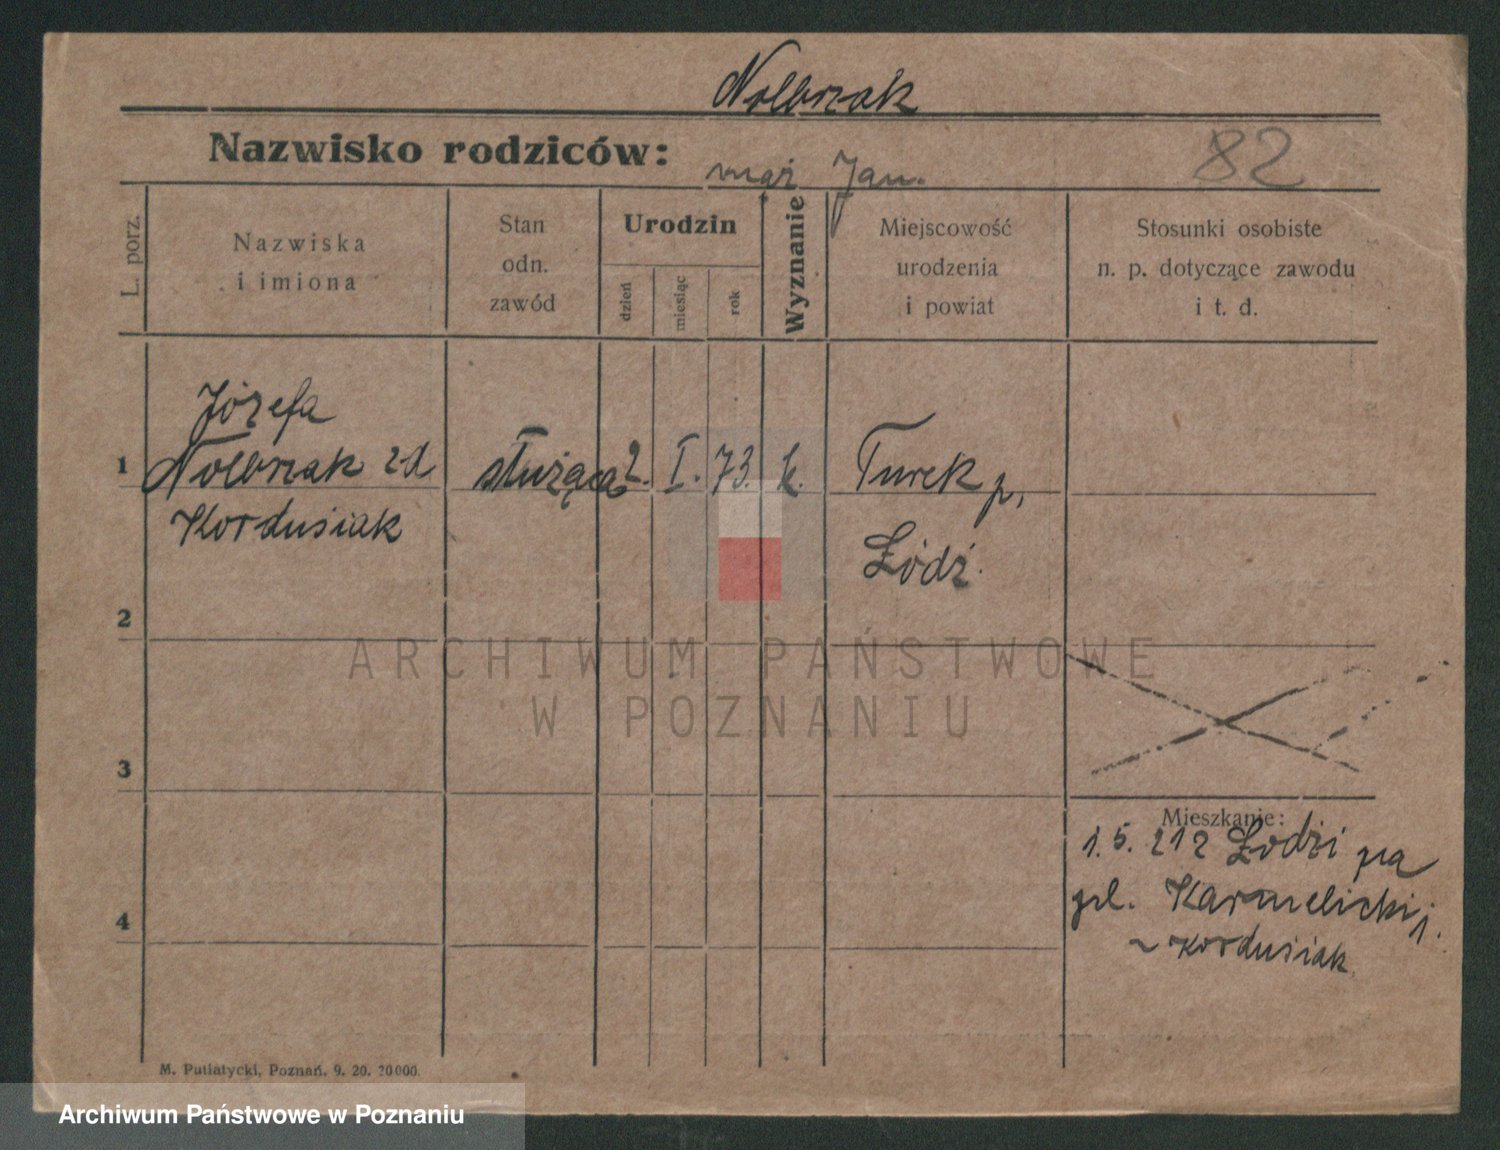 Nolbrzak
Nazwisko rodziców:
mąż Jan.
82
L. porz.
Nazwiska
i imiona
Stan
odn.
zawód
Urodzin
dzień
miesiąc
rok
Wyznanie
Miejscowość
urodzenia
i powiat
Stosunki osobiste
n. p. dotyczące zawodu
i t. d.
Józefa
1 Nolbrzak zd służąca 2. I. 73. k. Turek p.
Kordusiak
Łódź.
2
ARCHIWUM PAŃSTWOWE
W POZNANIU
3
Mieszkanie:
1. 5. 212 Łodzi na
pl. Karmelicki 1.
4
~ Kordusiak
M. Putiatycki, Poznań, 9. 20. 20000.
Archiwum Państwowe w Poznaniu